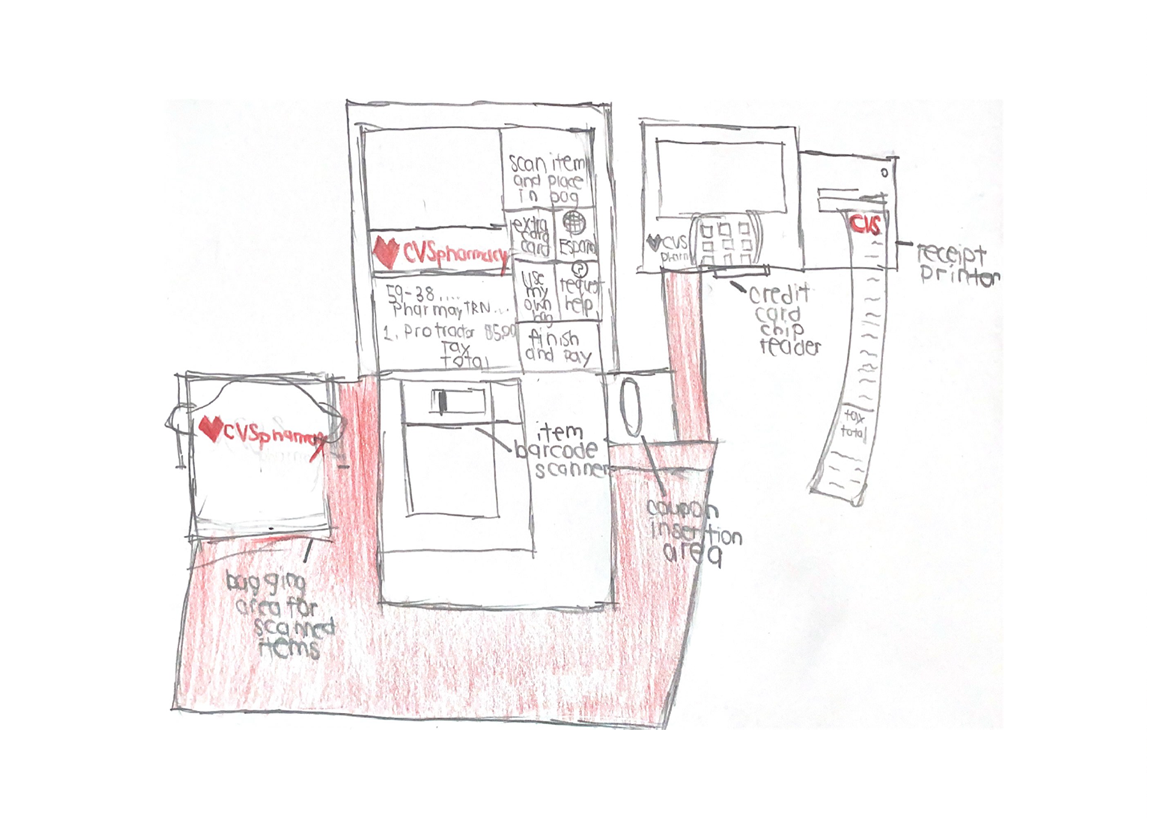 scan item
and place
in bag
extra
card
card
Español
CVSpharmacy
use
my
own
bag
?
request
help
59-38....
PharmayTRN...
1. Protractor $5.00
Tax
Total
finish
and pay
CVS
pharm
CVS
tax
total
receipt
printer
credit
card
chip
reader
CVSpharmacy
item
barcode
scanner
coupon
insertion
area
bagging
area for
scanned
items